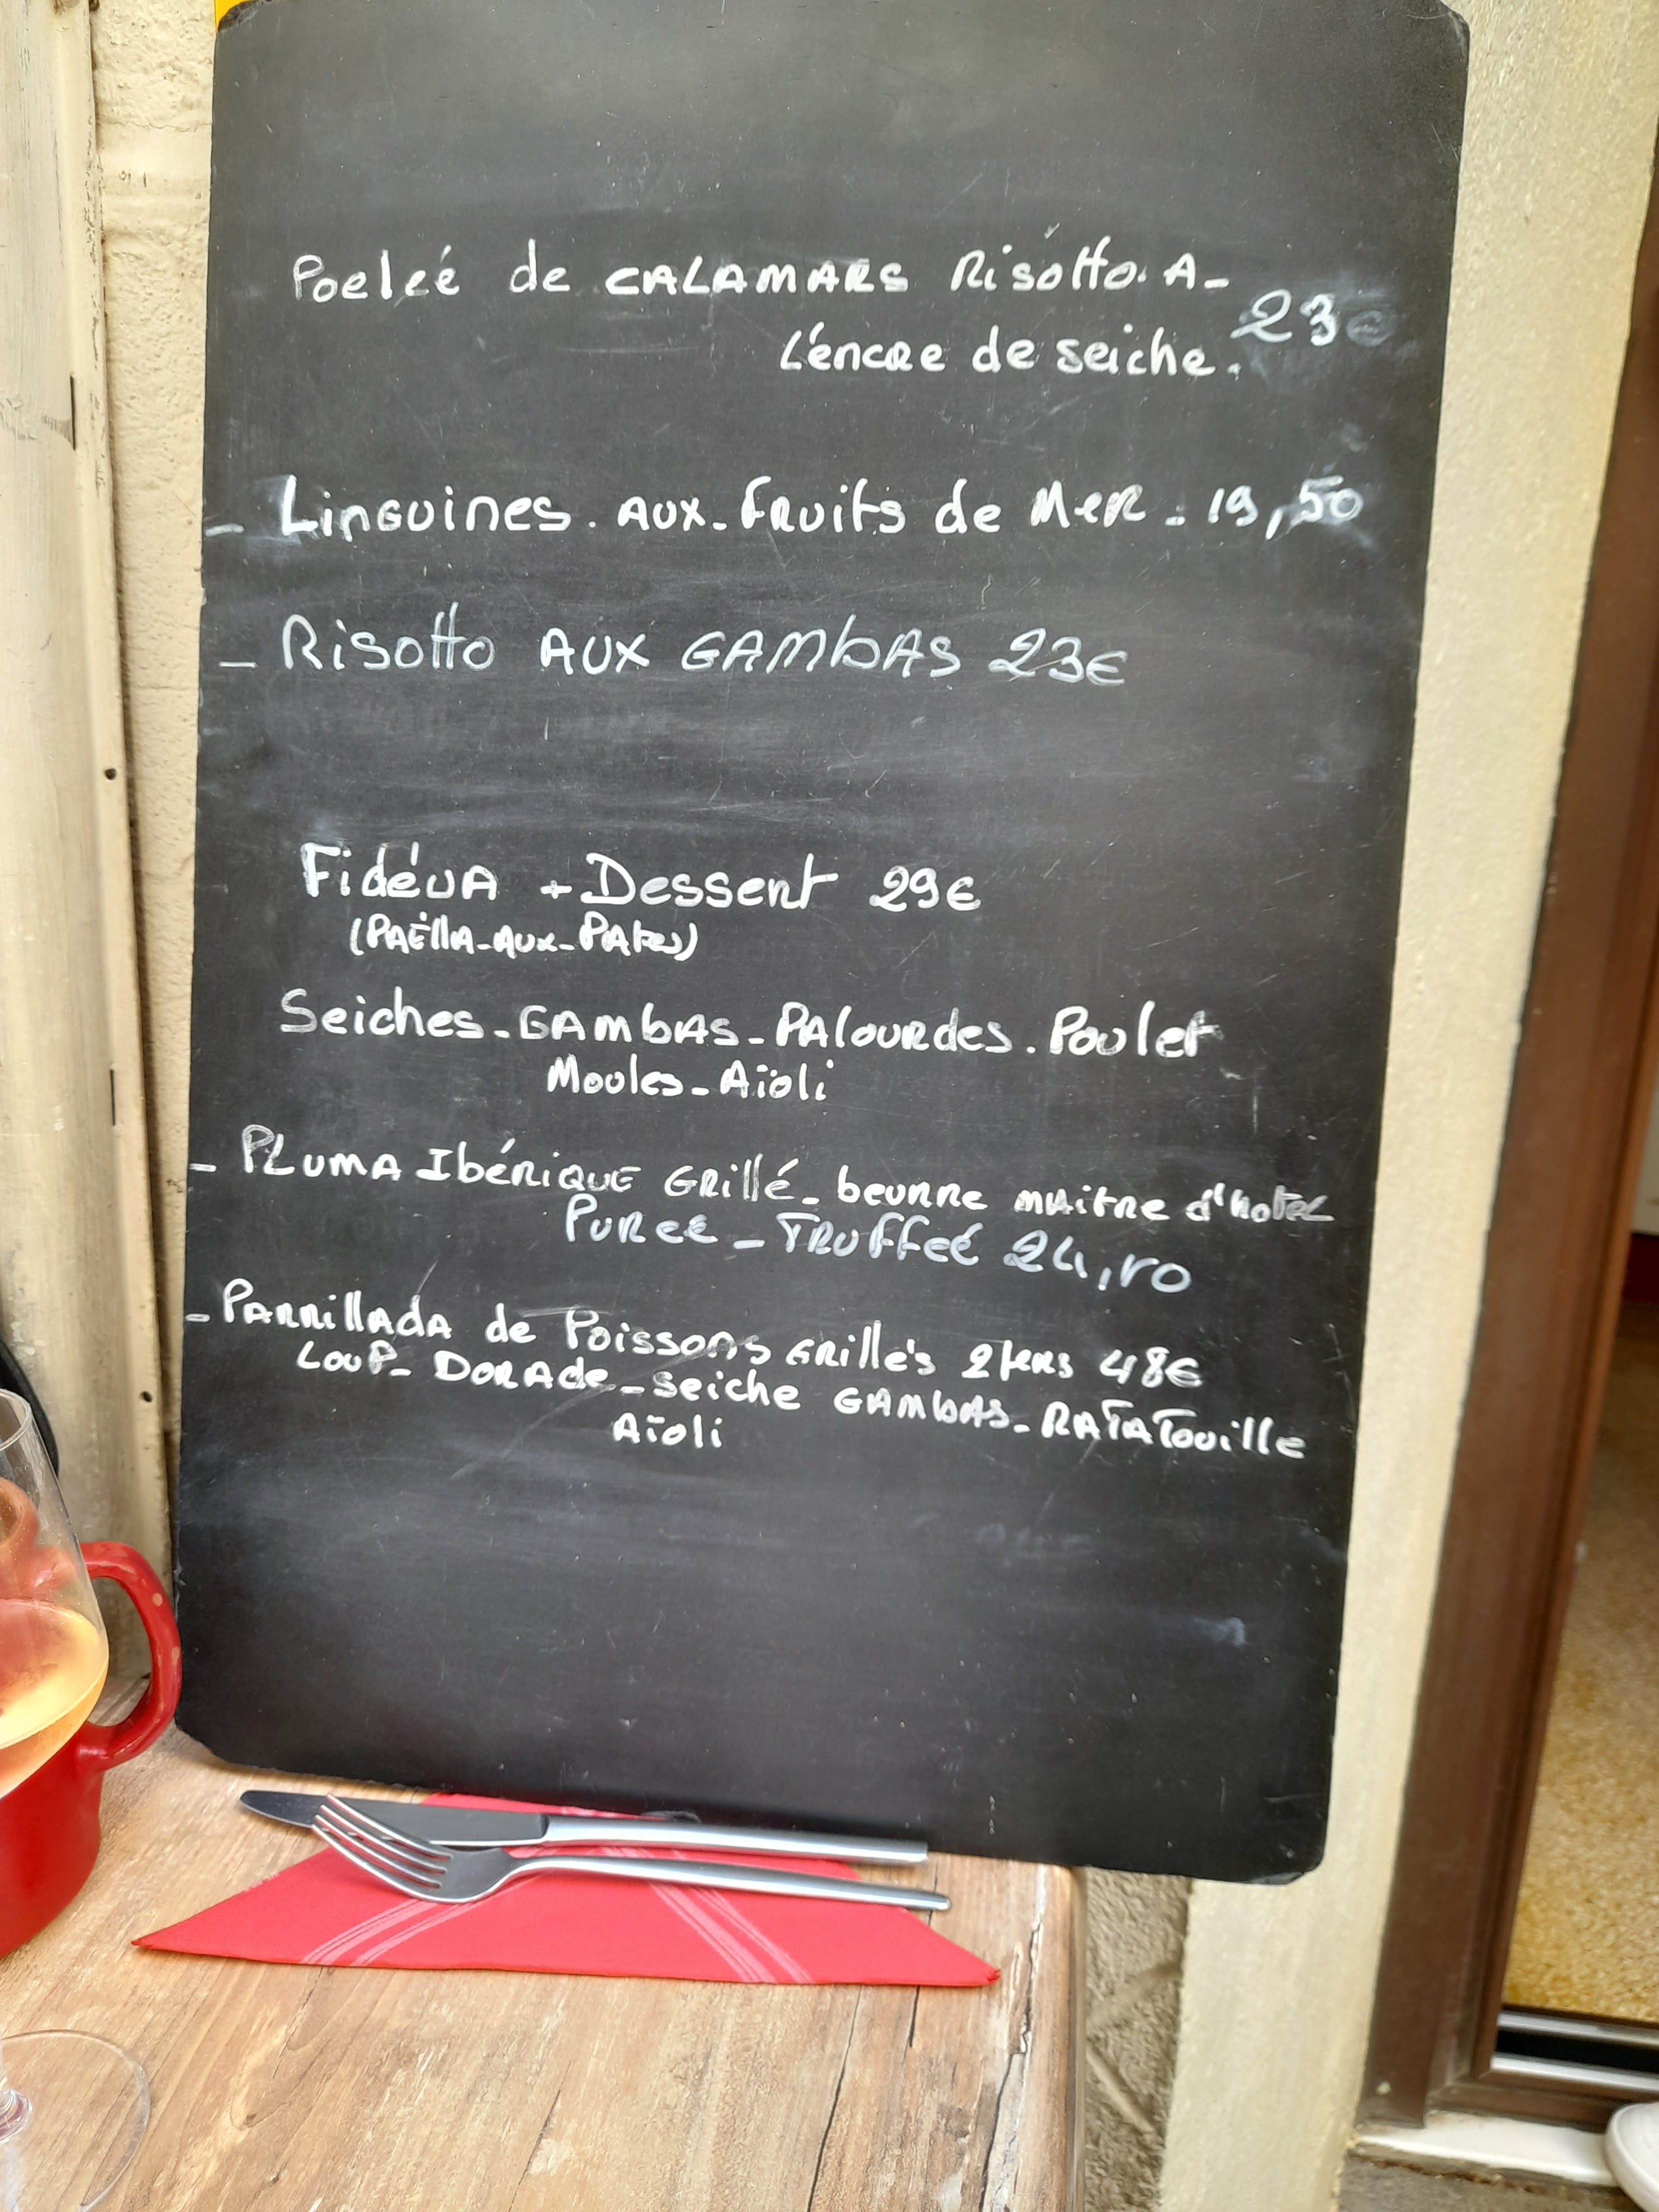 Poeleé de CALAMARS Risotto. A-
L'encre de seiche. 23€
- Linguines. AUX. Fruits de MER - 19,50
- Risotto AUX GAMBAS 23€
Fidéua + Dessert 29€
(PAËllA-AUX-PAtes)
Seiches-GAMbAS-PAlourdes. Poulet
Moules-Aïoli
- PLUMA IbéRIQUE GRillé- beurre maitre d'hotel
PUREE - TRUFFeé 24,50
- PARRillADA de Poissons GRillés 2 pers 48€
Loup- DORADe-seiche GAMbAS-RATATouille
Aïoli